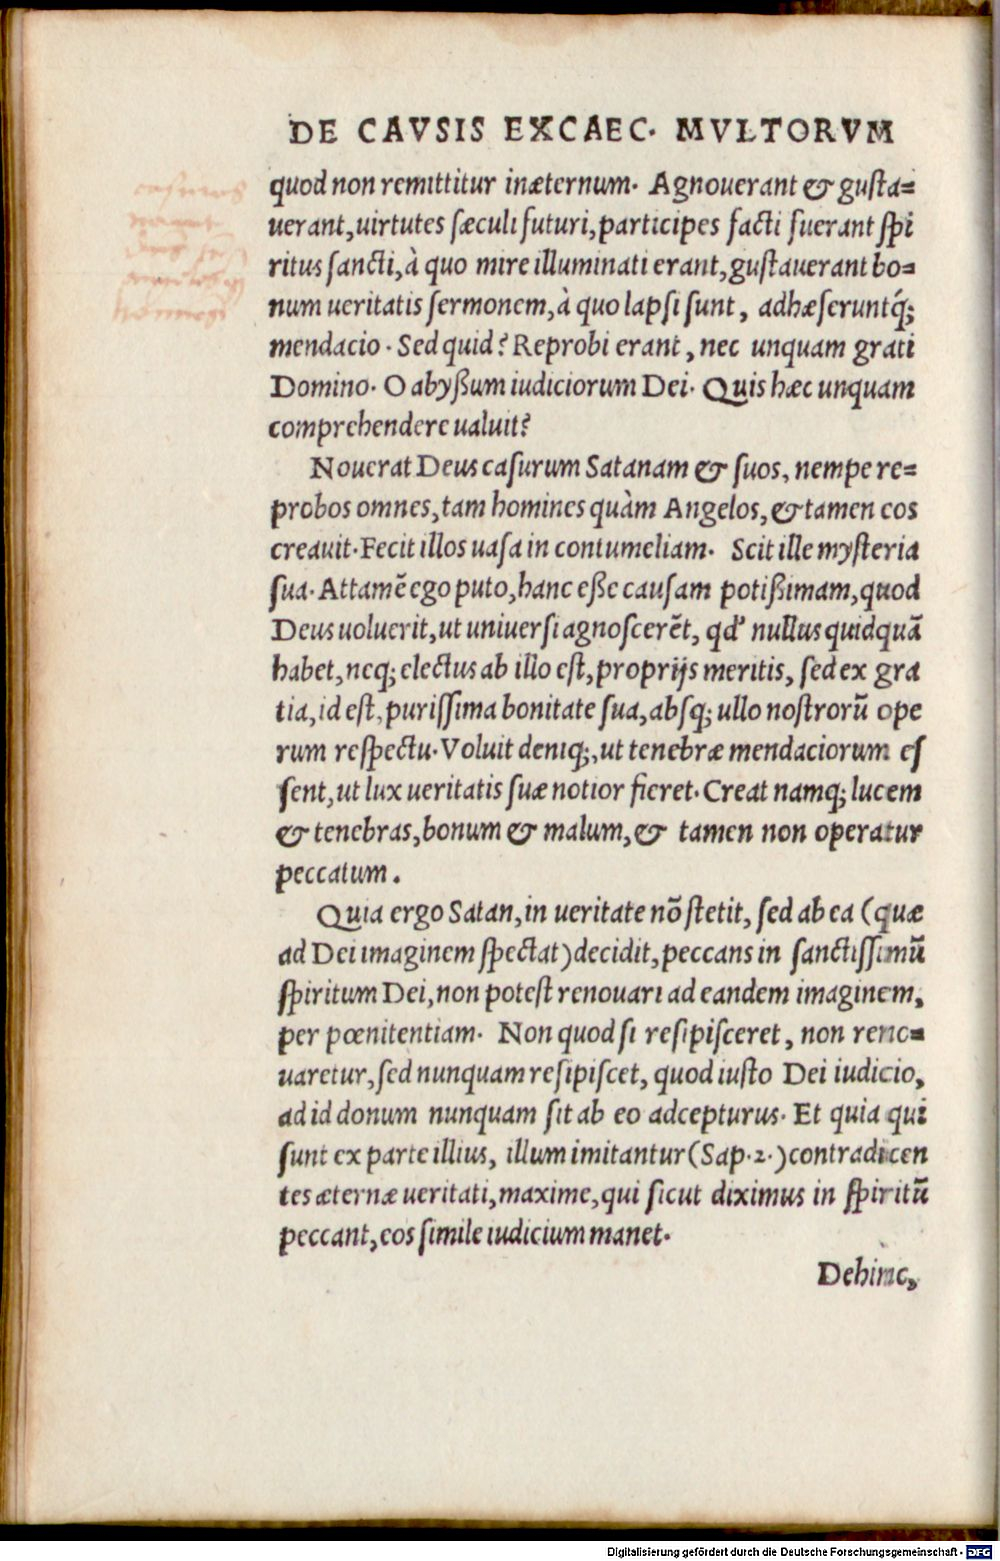 DE CAVSIS EXCAEC. MVLTORVM
quod non remittitur inæternum. Agnouerant & gusta=
uerant, uirtutes sæculi futuri, participes facti fuerant spi
ritus sancti, à quo mire illuminati erant, gustauerant bo=
num ueritatis sermonem, à quo lapsi sunt, adhæseruntq́;
mendacio. Sed quid? Reprobi erant, nec unquam grati
Domino. O abyßum iudiciorum Dei. Quis hæc unquam
comprehendere ualuit?
Nouerat Deus casurum Satanam & suos, nempe re=
probos omnes, tam homines quàm Angelos, & tamen eos
creauit. Fecit illos uasa in contumeliam. Scit ille mysteria
sua. Attamẽ ego puto, hanc eße causam potißimam, quod
Deus uoluerit, ut uniuersi agnoscerẽt, qd' nullus quidquã
habet, neq; electus ab illo est, proprijs meritis, sed ex gra
tia, id est, purissima bonitate sua, absq; ullo nostrorũ ope
rum respectu. Voluit deniq;, ut tenebræ mendaciorum es
sent, ut lux ueritatis suæ notior fieret. Creat namq; lucem
& tenebras, bonum & malum, & tamen non operatur
peccatum.
Quia ergo Satan, in ueritate nõ stetit, sed ab ea (quæ
ad Dei imaginem spectat) decidit, peccans in sanctissimũ
spiritum Dei, non potest renouari ad eandem imaginem,
per pœnitentiam. Non quod si resipisceret, non reno=
uaretur, sed nunquam resipiscet, quod iusto Dei iudicio,
ad id donum nunquam sit ab eo adcepturus. Et quia qui
sunt ex parte illius, illum imitantur (Sap. 2.) contradicen
tes æternæ ueritati, maxime, qui sicut diximus in spiritũ
peccant, eos simile iudicium manet.
Dehinc,
Digitalisierung gefördert durch die Deutsche Forschungsgemeinschaft - DFG